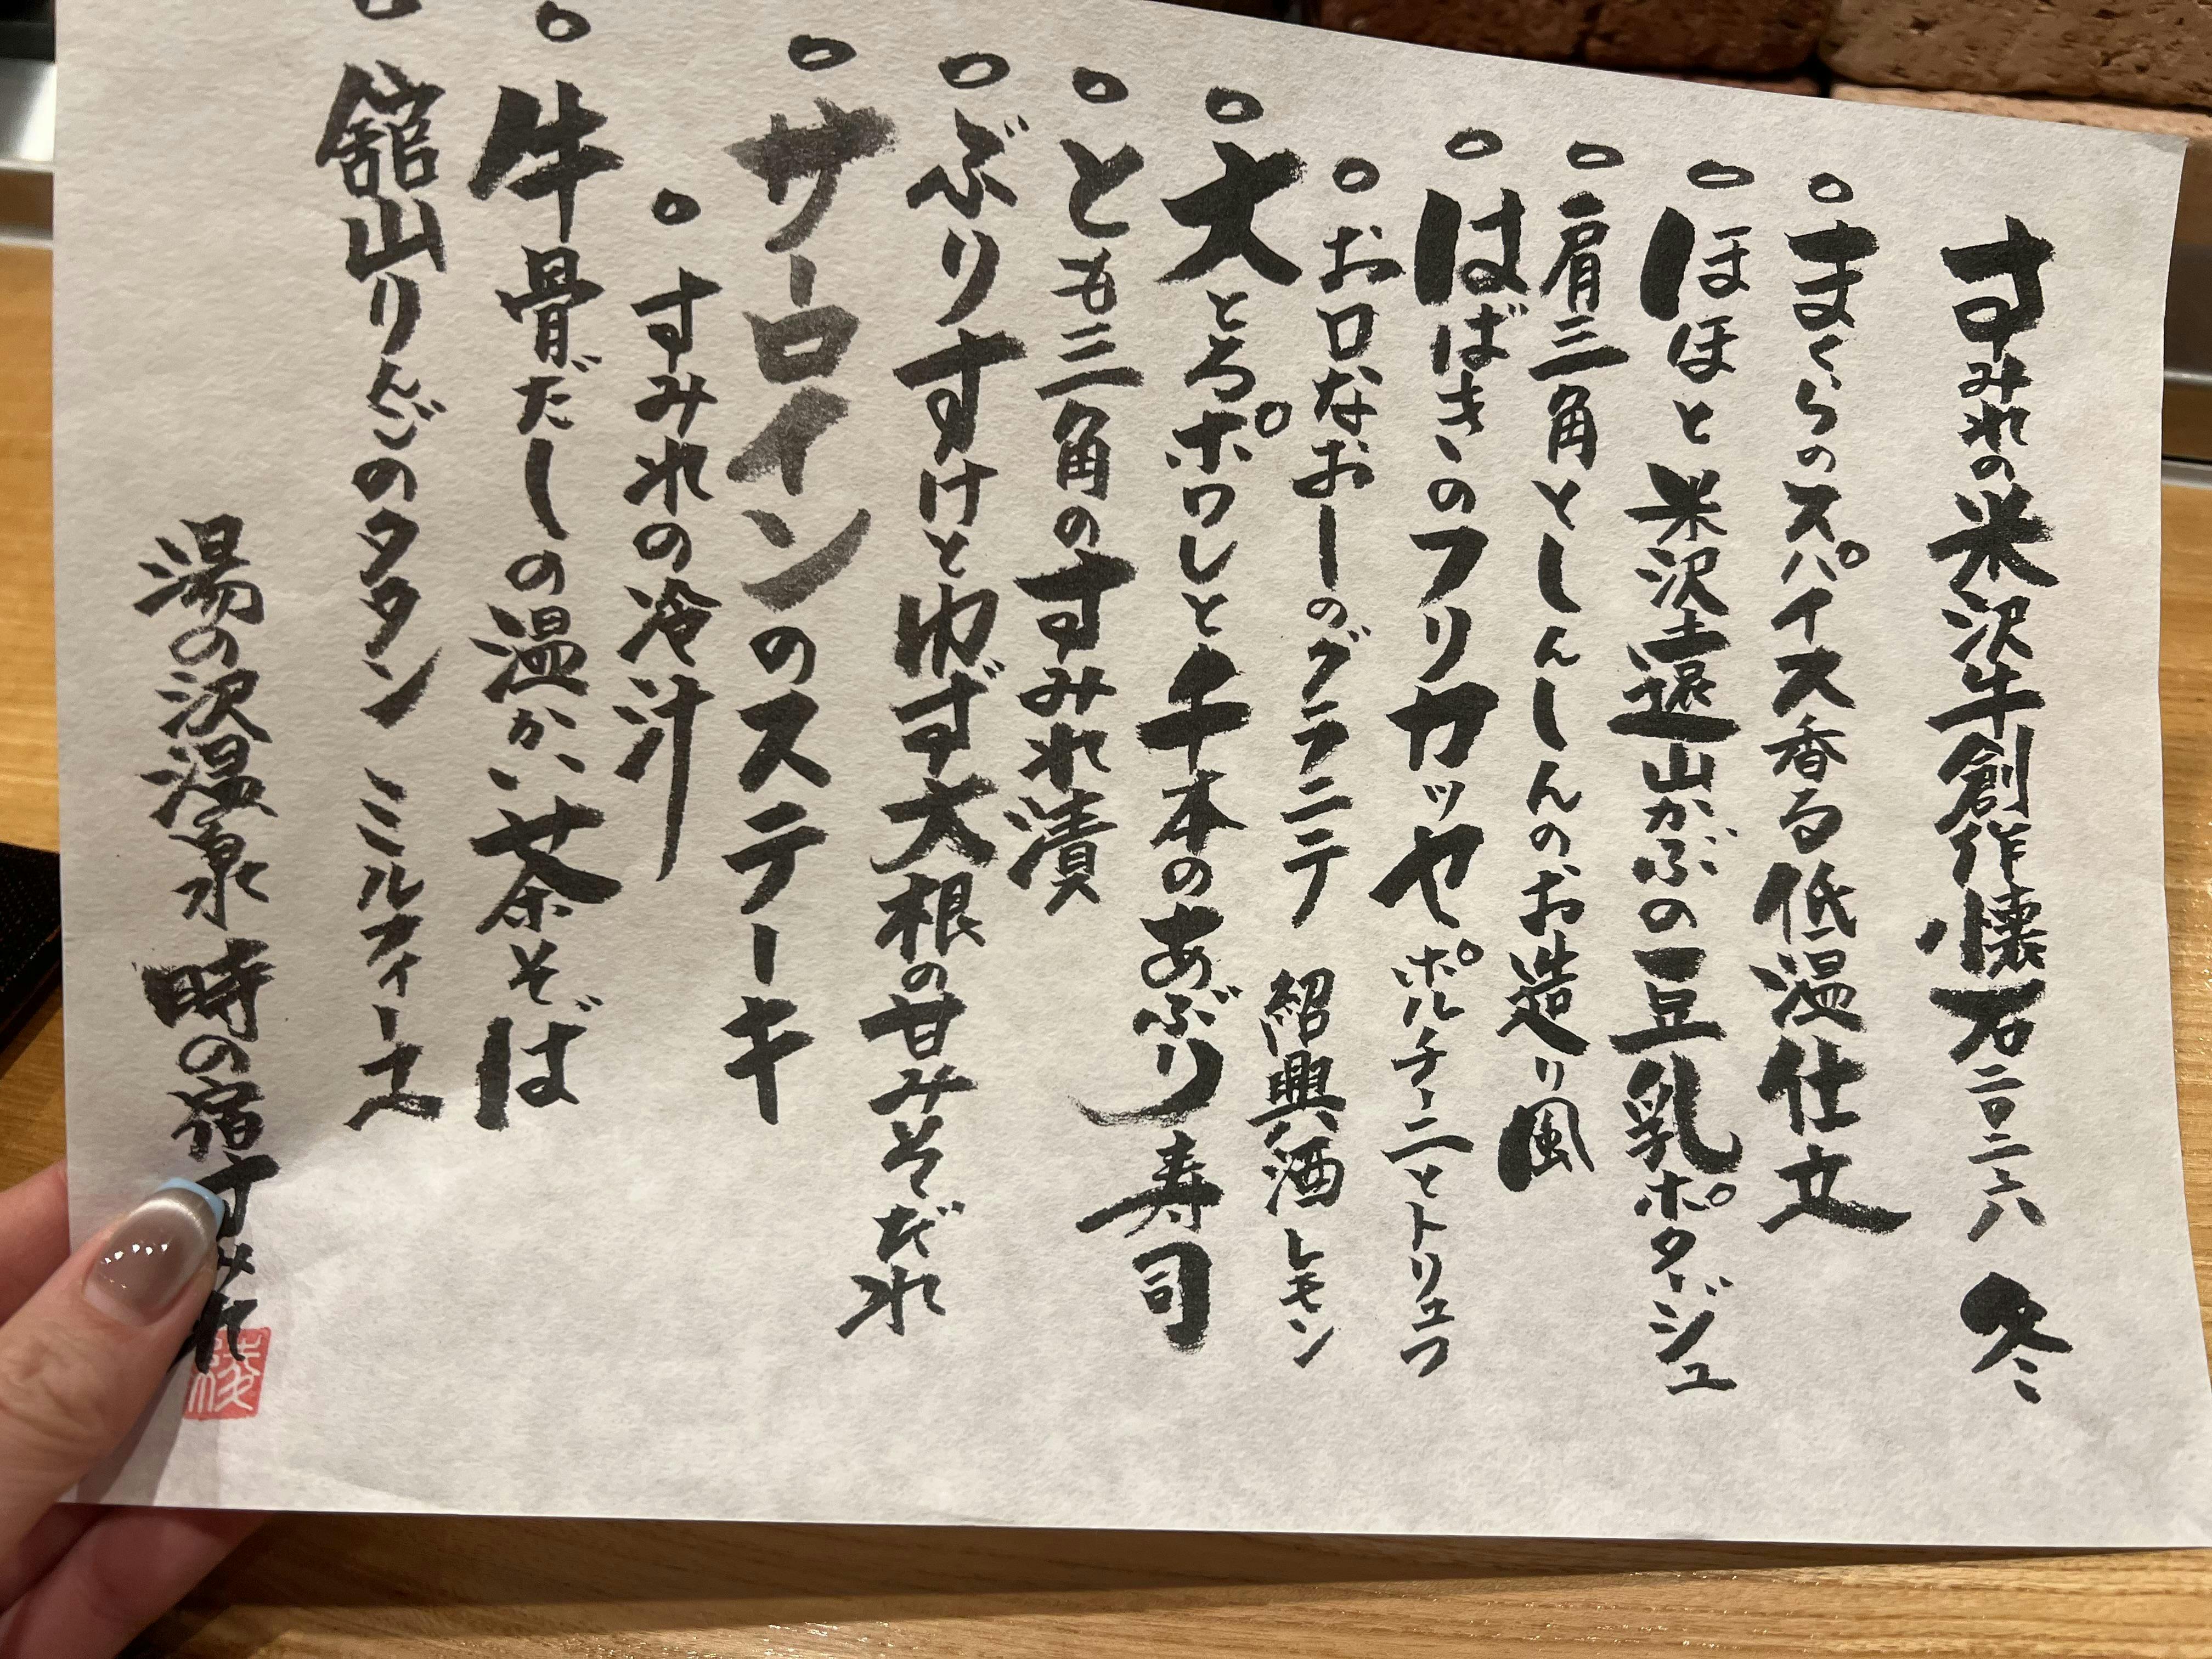 すみれの米沢牛創作懐石二〇二六 冬
。まくらのスパイス香る低温仕立
。ほほほと米沢土遠山かぶの豆乳ポタージュ
。肩三角としんしんのお造り風
。はばきのフリカッセ ポルチーニとトリュフ
。お口なおしのグラニテ 紹興酒レモン
。大とろポワレと千本のあぶり寿司
。とも三角のすみれ漬
。ぶりすけとゆず大根の甘みそだれ
。サーロインのステーキ
。すみれの冷汁
。牛骨だしの温かい茶そば
。舘山りんごのタタン ミルフィーユ
湯の沢温泉 時の宿すみれ